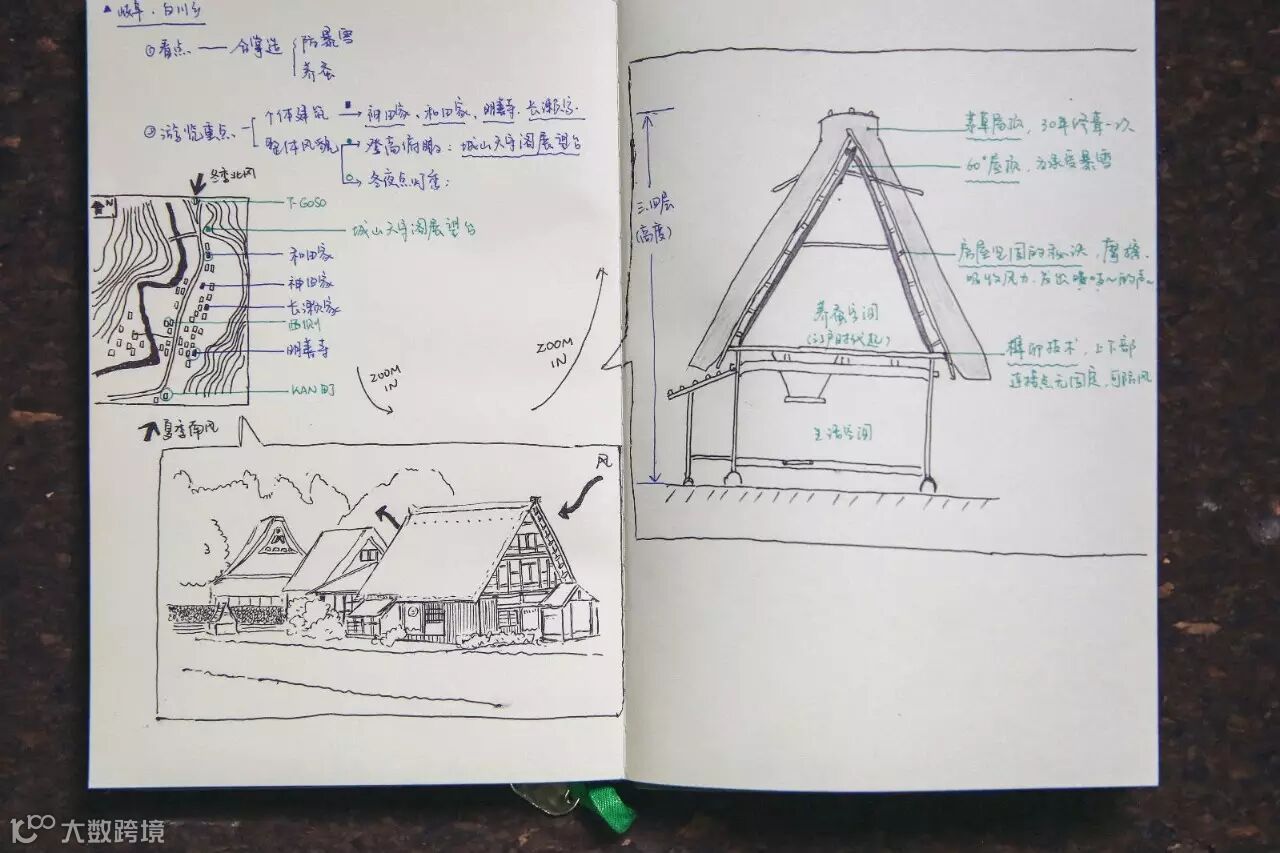 ▲ 岐阜·白川乡
①看点 —— 合掌造 { 防暴雪
养蚕
②游览重点 { 个体建筑 → 神田家、和田家、明善寺、长瀬家
整体风貌 登高俯瞰：城山天守阁展望台
冬夜点灯：
冬季北风
N
下GOSO
城山天守阁展望台
和田家
神田家
长瀬家
西侧
明善寺
KAN町
夏季南风
ZOOM
IN
ZOOM
IN
风
三、四层
(高度)
茅草屋顶，30年修葺一次
60°屋顶，为承受暴雪
房屋坚固的秘决，摩擦、
吸收风力，发出
养蚕空间
(江户时代起)
榫卯技术，上下部
连接点无固定，可防风
生活空间
大数跨境